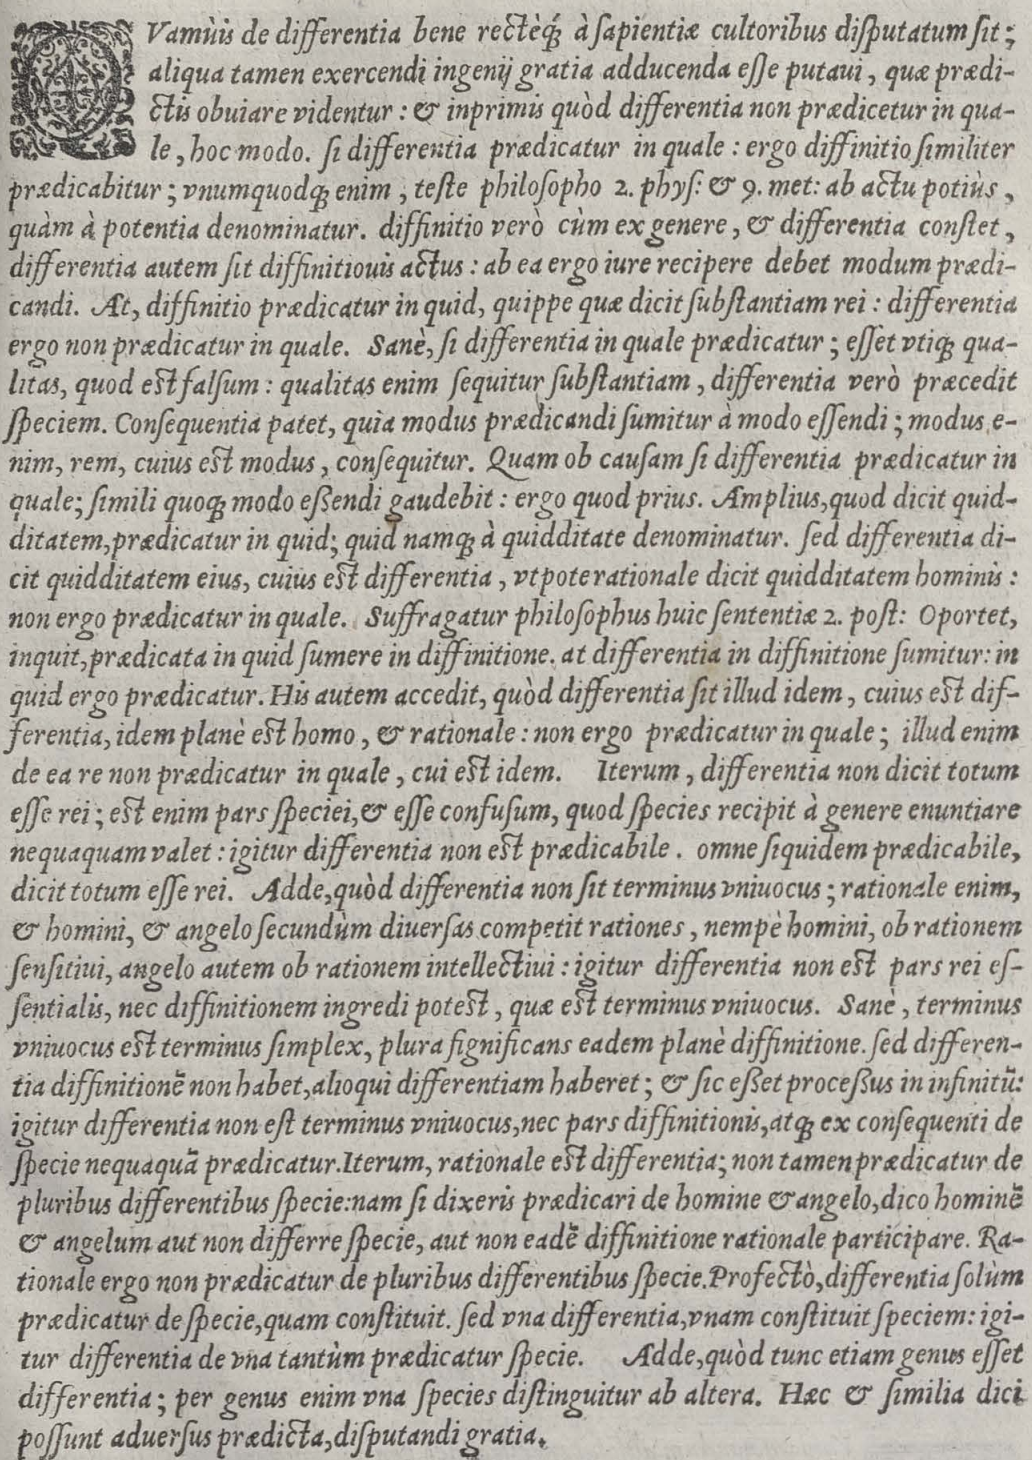 QVamùis de differentia bene rectèq́; à ſapientiæ cultoribus diſputatum ſit;
aliqua tamen exercendi ingenij gratia adducenda eſſe putaui, quæ prædi-
ctis obuiare videntur: & inprimis quòd differentia non prædicetur in qua-
le, hoc modo. ſi differentia prædicatur in quale: ergo diffinitio ſimiliter
prædicabitur; vnumquodq; enim, teſte philoſopho 2. phyſ: & 9. met: ab actu potiùs,
quàm à potentia denominatur. diffinitio verò cùm ex genere, & differentia conſtet,
differentia autem ſit diffinitiouis actus: ab ea ergo iure recipere debet modum prædi-
candi. At, diffinitio prædicatur in quid, quippe quæ dicit ſubſtantiam rei: differentia
ergo non prædicatur in quale. Sanè, ſi differentia in quale prædicatur; eſſet vtiq; qua-
litas, quod eſt falſum: qualitas enim ſequitur ſubſtantiam, differentia verò præcedit
ſpeciem. Conſequentia patet, quia modus prædicandi ſumitur à modo eſſendi; modus e-
nim, rem, cuius eſt modus, conſequitur. Quam ob cauſam ſi differentia prædicatur in
quale; ſimili quoq; modo eßendi gaudebit: ergo quod prius. Amplius, quod dicit quid-
ditatem, prædicatur in quid; quid namq; à quidditate denominatur. ſed differentia di-
cit quidditatem eius, cuius eſt differentia, vtpote rationale dicit quidditatem hominis:
non ergo prædicatur in quale. Suffragatur philoſophus huic ſententiæ 2. poſt: Oportet,
inquit, prædicata in quid ſumere in diffinitione. at differentia in diffinitione ſumitur: in
quid ergo prædicatur. His autem accedit, quòd differentia ſit illud idem, cuius eſt dif-
ferentia, idem planè eſt homo, & rationale: non ergo prædicatur in quale; illud enim
de ea re non prædicatur in quale, cui eſt idem. Iterum, differentia non dicit totum
eſſe rei; eſt enim pars ſpeciei, & eſſe confuſum, quod ſpecies recipit à genere enuntiare
nequaquam valet: igitur differentia non eſt prædicabile. omne ſiquidem prædicabile,
dicit totum eſſe rei. Adde, quòd differentia non ſit terminus vniuocus; rationale enim,
& homini, & angelo ſecundùm diuerſas competit rationes, nempè homini, ob rationem
ſenſitiui, angelo autem ob rationem intellectiui: igitur differentia non eſt pars rei eſ-
ſentialis, nec diffinitionem ingredi poteſt, quæ eſt terminus vniuocus. Sanè, terminus
vniuocus eſt terminus ſimplex, plura ſignificans eadem planè diffinitione. ſed differen-
tia diffinitionē non habet, alioqui differentiam haberet; & ſic eßet proceßus in infinitū:
igitur differentia non eſt terminus vniuocus, nec pars diffinitionis, atq; ex conſequenti de
ſpecie nequaquā prædicatur. Iterum, rationale eſt differentia; non tamen prædicatur de
pluribus differentibus ſpecie: nam ſi dixeris prædicari de homine & angelo, dico hominē
& angelum aut non differre ſpecie, aut non eadē diffinitione rationale participare. Ra-
tionale ergo non prædicatur de pluribus differentibus ſpecie. Profectò, differentia ſolùm
prædicatur de ſpecie, quam conſtituit. ſed vna differentia, vnam conſtituit ſpeciem: igi-
tur differentia de vna tantùm prædicatur ſpecie. Adde, quòd tunc etiam genus eſſet
differentia; per genus enim vna ſpecies diſtinguitur ab altera. Hæc & ſimilia dici
poſſunt aduerſus prædicta, diſputandi gratia.